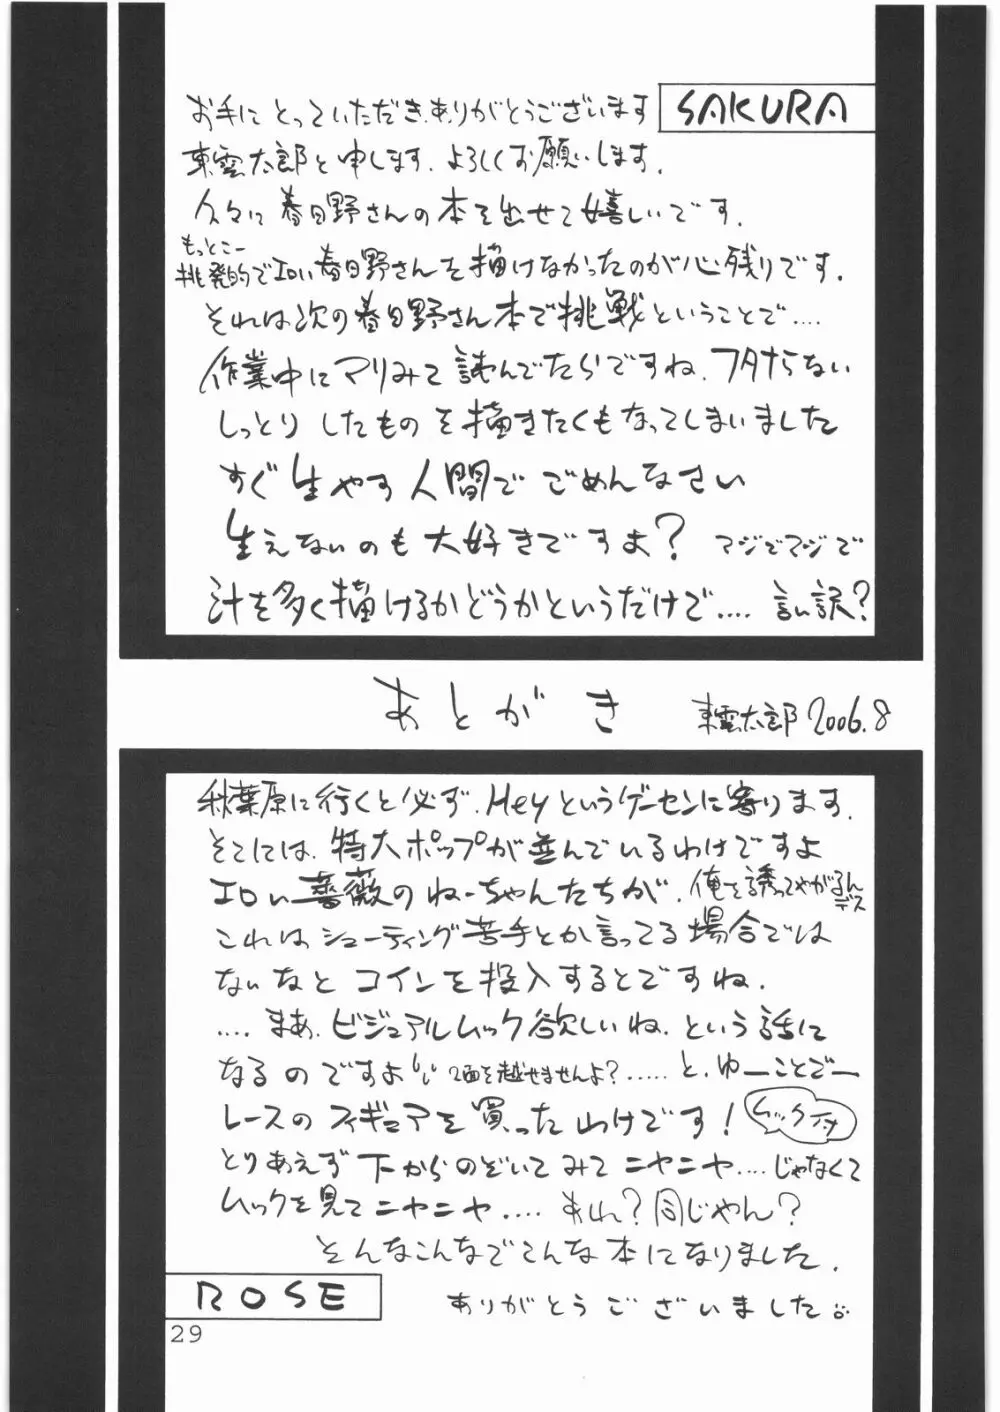 SAKURA
お手にとっていただきありがとうございます
東雲太郎と申します、よろしくお願いします。
久々に春日野さんの本を出せて嬉しいです。
もっとこー
挑発的でエロい春日野さんを描けなかったのが心残りです。
それは次の春日野さん本で挑戦ということで‥‥
作業中にマリみて読んでたらですね、フタナらない
しっとりしたものを描きたくもなってしまいました
すぐ生やす人間でごめんなさい
生えないのも大好きですよ？ マジでマジで
汁を多く描けるかどうかというだけで‥‥ 言い訳？
あとがき 東雲太郎 2006.8
秋葉原に行くと必ず、Heyというゲーセンに寄ります。
そこには、特大ポップが並んでいるわけですよ
エロい薔薇のねーちゃんたちが、俺を誘ってやがるん
デス
これはシューティング苦手とか言ってる場合では
ないなとコインを投入するとですね。
‥‥まあ、ビジュアルムック欲しいね、という話に
なるのですよ 2面を越せませんよ？‥‥‥と、ゆーことでー
レースのフィギュアを買ったわけです！
ムック付
とりあえず下からのぞいてみてニヤニヤ‥‥じゃなくて
ムックを見てニヤニヤ‥‥あれ？同じやん？
そんなこんなでこんな本になりました。
ROSE
ありがとうございました
29